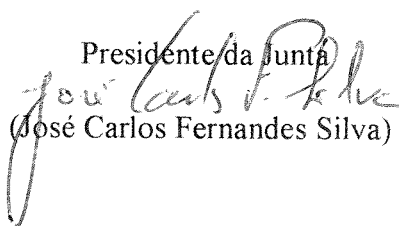 Presidente da Junta
José Carlos F. Silva
(José Carlos Fernandes Silva)